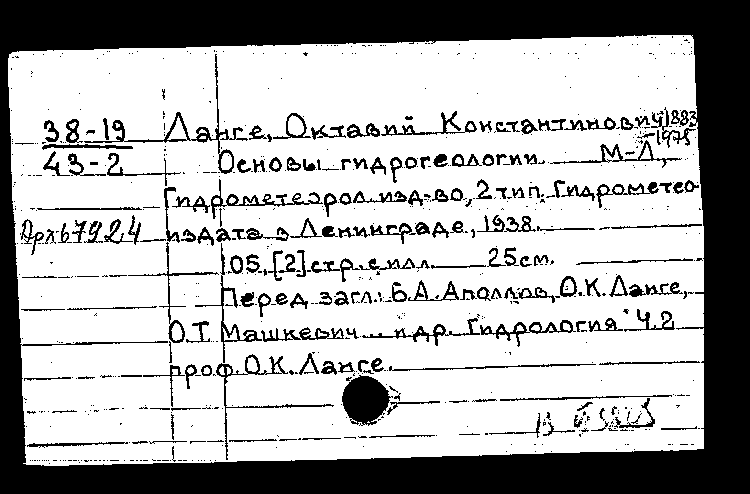 38-19 Ланге, Октавий Константинович 1883
43-2 Основы гидрогеологии. М-Л, -1975
Гидрометеорол. изд-во, 2 тип. Гидрометео-
Арх67924 издата в Ленинграде, 1938.
105, [2] стр. с илл. 25см.
Перед загл.: Б.А. Аполлов, О.К. Ланге,
О.Т. Машкевич... и др. Гидрология Ч.2
проф. О.К. Ланге.
В